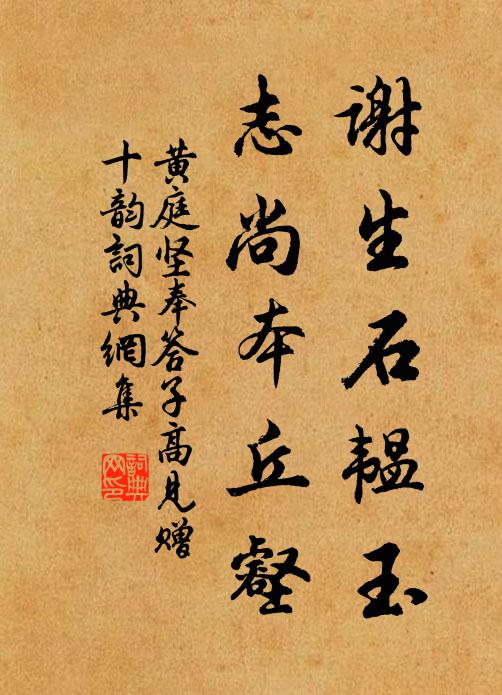 谢生石韫玉
志尚本丘壑
黄庭坚奉答子高见赠
十韵詞典網集
詞典
网印